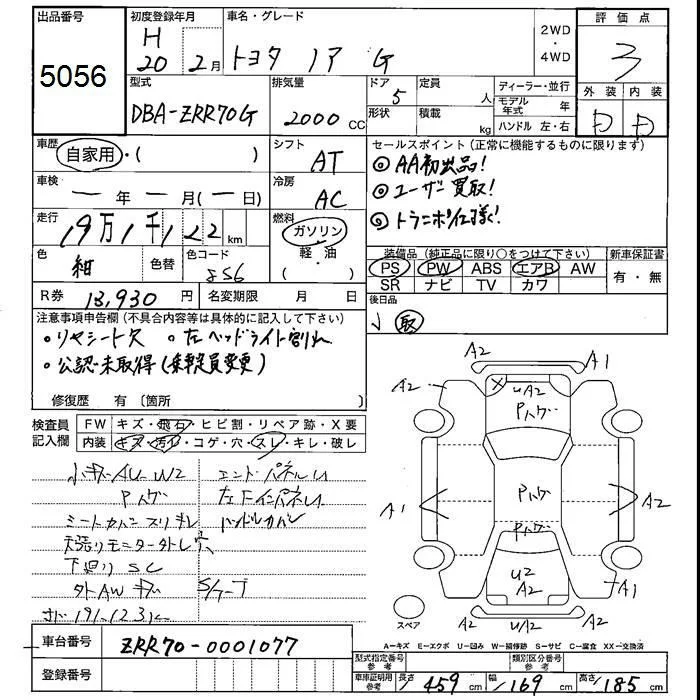 出品番号 初度登録年月 車名・グレード 2WD ・ 4WD 評価点
5056 H 20年 2月 トヨタ ノア G 3
型式 排気量 ドア 定員 ディーラー・並行 外装 内装
DBA-ZRR70G 2000 CC 5 人 モデル年式 年 D D
形状 積載 kg ハンドル 左・右
車歴 自家用・( ) シフト AT セールスポイント(正常に機能するものに限ります)
◎AA初出品!
車検 ー年 ー月(ー日) 冷房 AC ◎ユーザー買取!
走行 19万1千122 km 燃料 ガソリン ・ 軽油 ( ) ◎トランポ仕様!
色 紺 色替 色コード 装備品(純正品に限り○をつけて下さい) 新車保証書
PS PW ABS エアB AW 有・無
SR ナビ TV カワ
R券 13,930円 名変期限 月 日 後日品
注意事項申告欄(不具合内容等は具体的に記入して下さい) 取
・リヤシート欠 ・左ヘッドライト割れ
・公認未取得(乗車定員変更)
修復歴 有(箇所 )
検査員記入欄 FW キズ・飛石・ヒビ割・リペア跡・X要
内装 キズ・汚れ・コゲ・穴・スレ・キレ・破レ
AU-W2 エンドパネルU
Pハゲ 左FインパネU
シートカバー スリキレ ハンドルカバー
天張りモニター外し
下廻り SC
外AW キズ S/テープ
191,123km
車台番号 ZRR70-0001077
登録番号
A2 A1
A2 UA2
Pハゲ
A1 Pハゲ A2
Pハゲ
U2 A2 A1
スペア A2 U/A2
A=キズ E=エクボ U=凹み W=補修跡 S=サビ C=腐食 XX=交換済
型式指定番号 参考 類別区分番号 参考
車庫証明用 参考 長さ 459 cm 幅 169 cm 高さ 185 cm